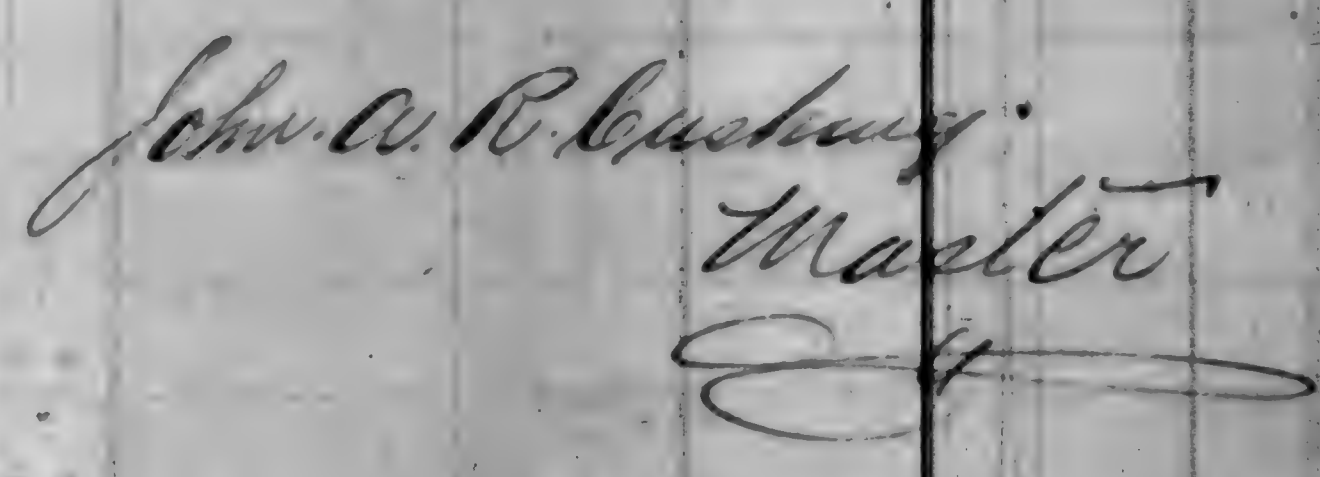 John. A. R. Cushing.
Master